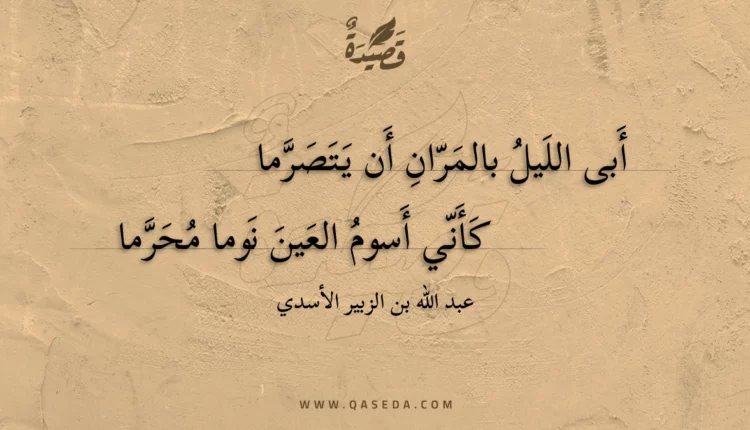 قَصِيدَةٌ
أَبى اللَيلُ بالمَرّانِ أَن يَتَصَرَّما
كَأَنّي أَسومُ العَينَ نَوما مُحَرَّما
عبد الله بن الزبير الأسدي
WWW.QASEDA.COM